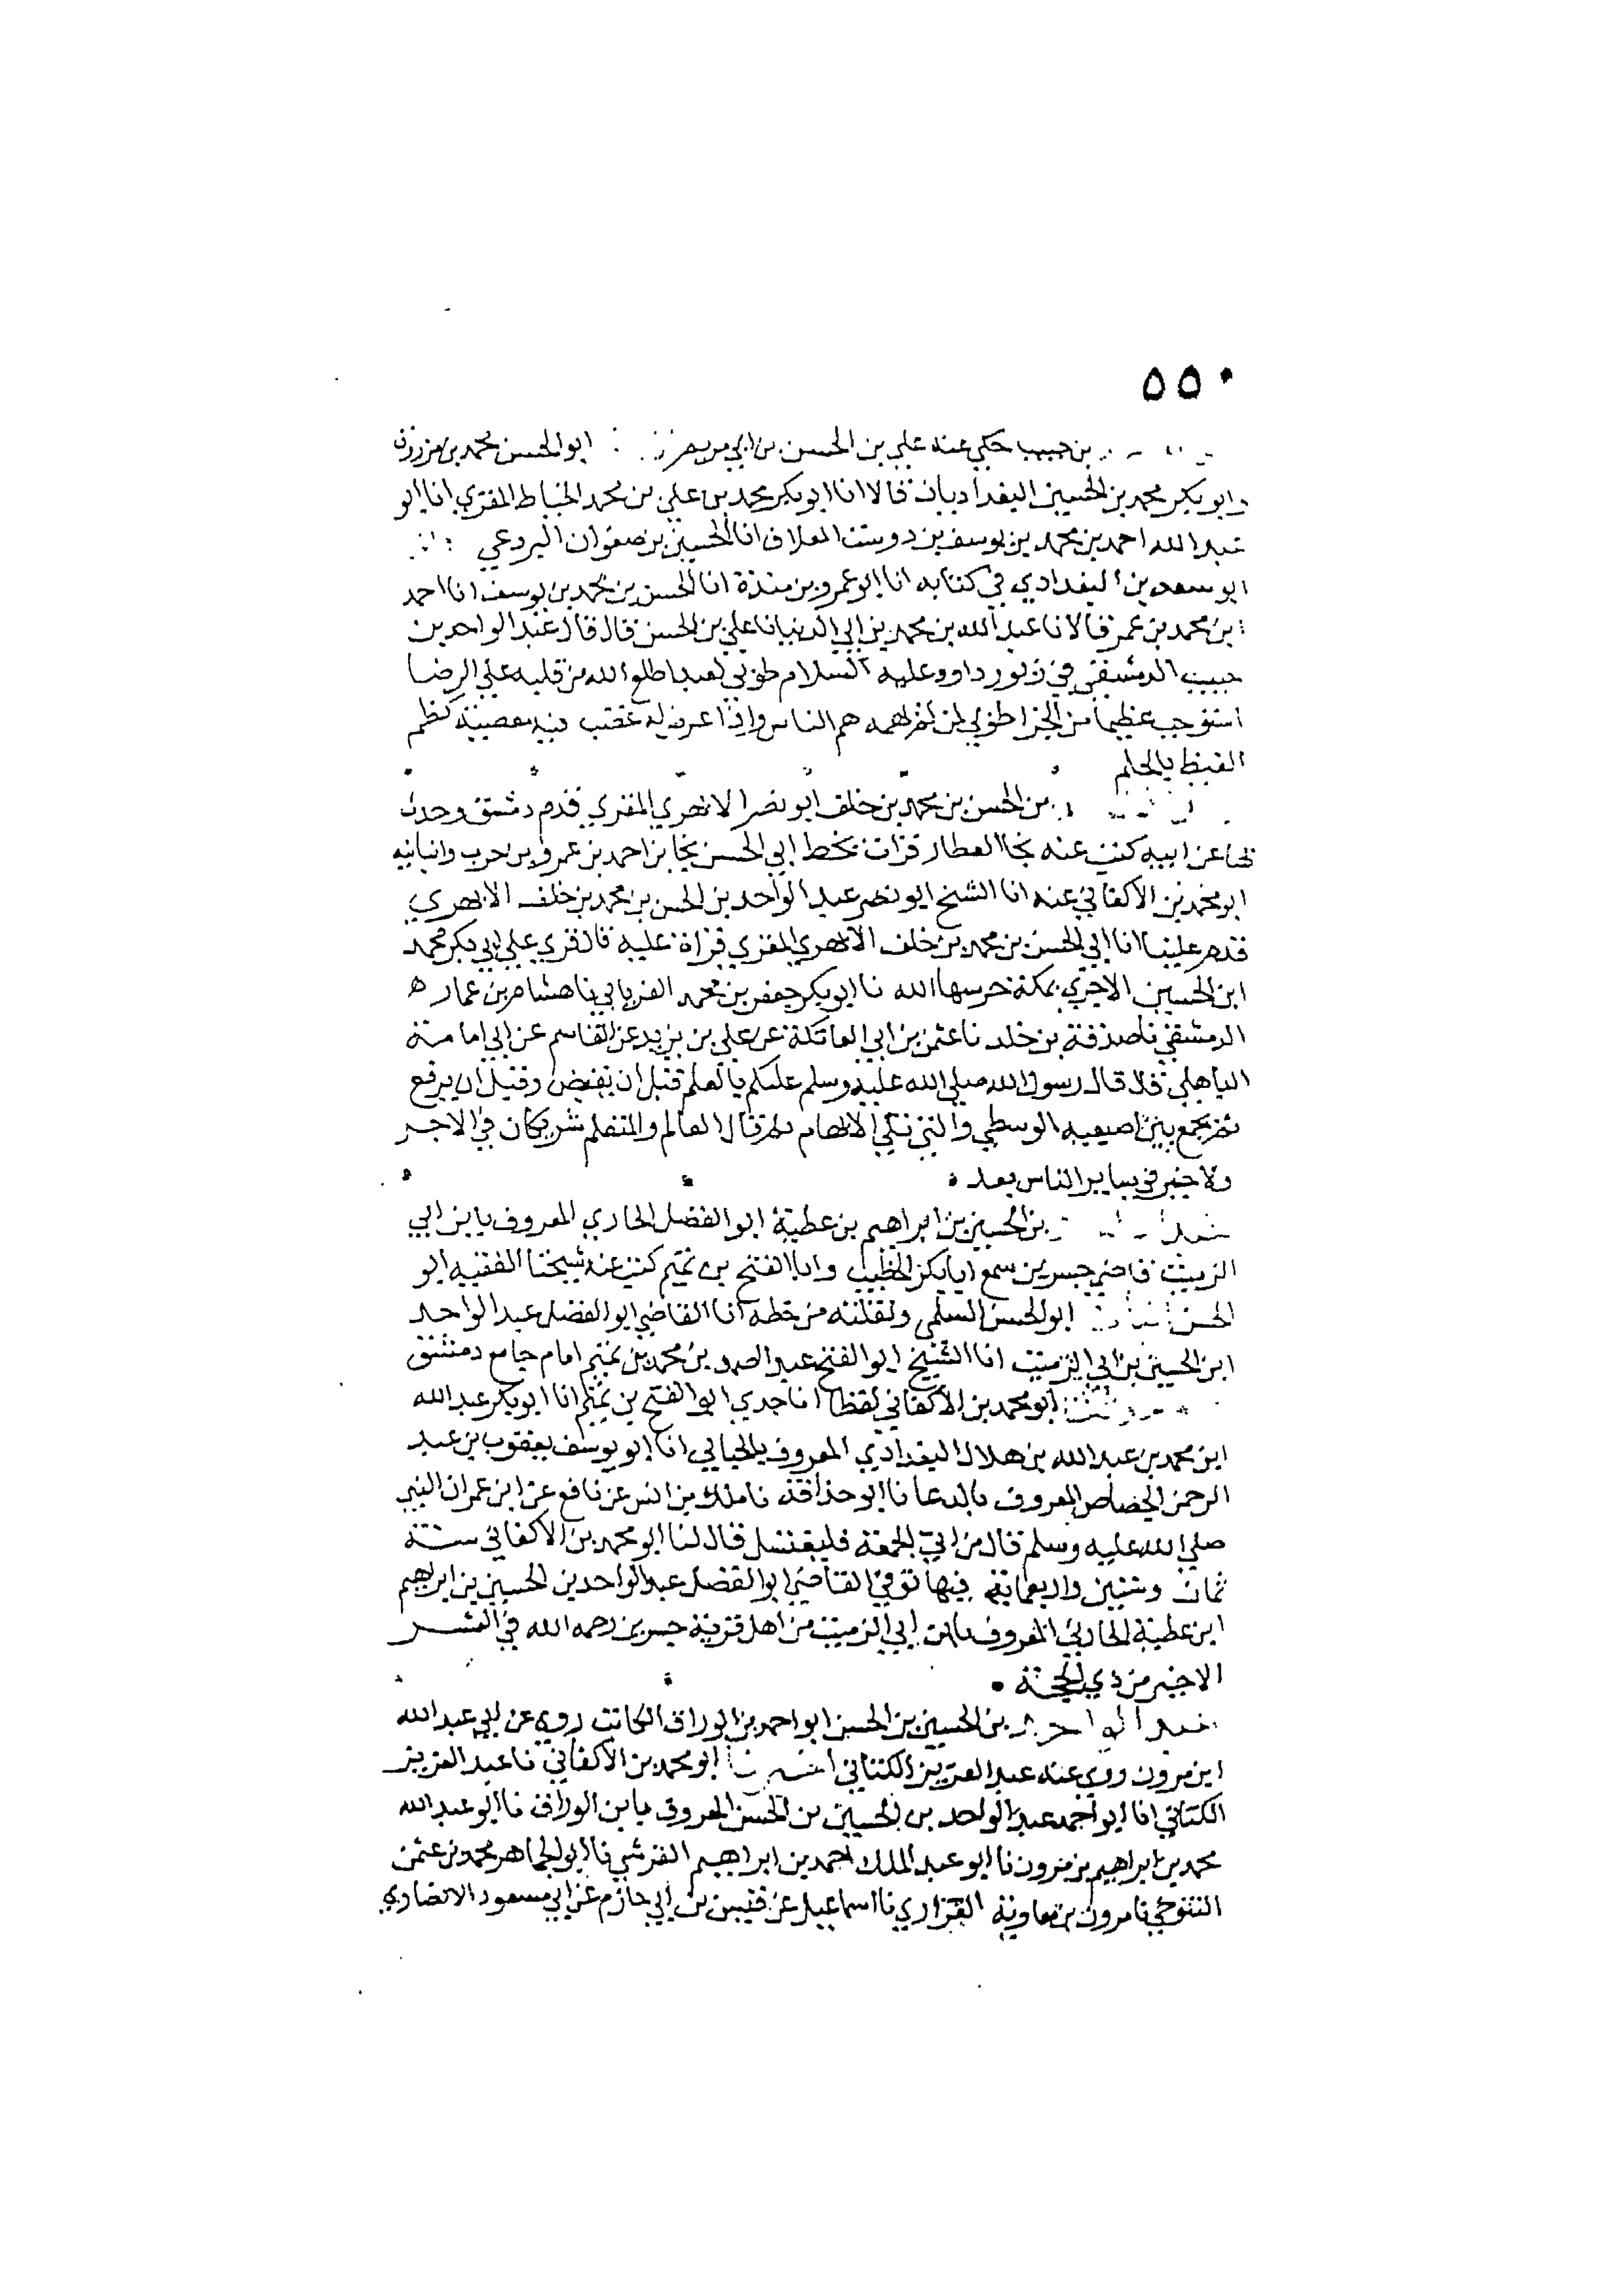 ٥٥٠
بن حبيب حكي عنه علي بن الحسن بن ابي مريم ابو الحسن محمد بن مرزوق
وابو بكر محمد بن الحسين البغداديان قالا انا ابو بكر محمد بن علي بن محمد الخياط المقري انا ابو
عبد الله احمد بن محمد بن يوسف بن دوست العلاف انا الحسين بن صفوان البردعي
ابو سعد بن البغدادي في كتابه انا ابو عمرو بن مندة انا الحسن بن محمد بن يوسف انا احمد
بن محمد بن عمر قالا نا عبد الله بن محمد بن ابي الدنيا نا علي بن الحسن قال قال عبد الواحد بن
حبيب الدمشقي في زبور داوود عليه السلام طوبي لعبد اطلع الله من قلبه علي الرضا
استوجب عظيما من الجزا طوبي لمن لم يهمه هم الناس واذا عرض له غضب فيه معصية كظم
الغيظ بالحلم
بن الحسن بن محمد بن خلف ابو نصر الابهري المقري قدم دمشق وحدث
بها عن ابيه كتب عنه نجا العطار قرات بخط ابي الحسن نجا بن احمد بن عمرو بن حرب وانبانيه
ابو محمد بن الاكفاني عنه انا الشيخ ابو نصر عبد الواحد بن الحسن بن محمد بن خلف الابهري
قدم علينا انا ابي الحسن بن محمد بن خلف الابهري المقري قراة عليه قال قري علي ابي بكر محمد
ابن الحسين الاجري بمكة حرسها الله نا ابو بكر جعفر بن محمد الفريابي نا هشام بن عمار ه
الدمشقي نا صدقة بن خلد نا عثمن بن ابي العاتكة عن علي بن يزيد عن القاسم عن ابي امامة
الباهلي قال قال رسول الله صلي الله عليه وسلم عليكم بالعلم قبل ان يقبض وقبل ان يرفع
ثم يجمع بين اصبعيه الوسطي والتي تلي الابهام ثم قال العالم والمتعلم شريكان في الاجر
ولا خير في ساير الناس بعد
بن الحسين بن ابراهيم بن عطية ابو الفضل الحاربي المعروف بابن ابي
الزميت قاضي جسرين سمع ابا بكر الخطيب وابا الفتح بن تميم كتب عنه شيخنا الفقيه ابو
الحسن ابو الحسن السلمي ونقلته من خطه انا القاضي ابو الفضل عبد الواحد
ابن الحسين بن ابي الزميت انا الشيخ ابو الفتح عبد الصمد بن محمد بن تميم امام جامع دمشق
ابو محمد بن الاكفاني لفظا انا جدي ابو الفتح بن تميم انا ابو بكر عبد الله
ابن محمد بن عبد الله بن هلال البغدادي المعروف بالحبالي انا ابو يوسف يعقوب بن عبد
الرحمن الجصاص المعروف بالدعا نا ابو حذافة نا ملك بن انس عن نافع عن ابن عمر ان النبي
صلي الله عليه وسلم قال من اتي الجمعة فليغتسل قال لنا ابو محمد بن الاكفاني سنة
ثمان وستين واربعماية فيها توفي القاضي ابو الفضل عبد الواحد بن الحسين بن ابرهيم
ابن عطية الحاربي المعروف بابن ابي الزميت من اهل قرية جسرين رحمه الله في العشر
الاخير من ذي الحجة
عبد الواحد بن الحسين بن الحسن ابو احمد بن الوراق الكاتب روي عن ابي عبد الله
ابن مرون روي عنه عبد العزيز الكتاني ابو محمد بن الاكفاني نا عبد العزيز
الكتاني انا ابو احمد عبد الواحد بن الحسين بن الحسن المعروف بابن الوراق نا ابو عبد الله
محمد بن ابراهيم بن مرون نا ابو عبد الملك احمد بن ابراهيم القرشي نا ابو الجماهر محمد بن عثمن
التنوخي نا مرون بن معاوية الفزاري نا اسماعيل عن قيس بن ابي حازم عن ابي مسعود الانصاري